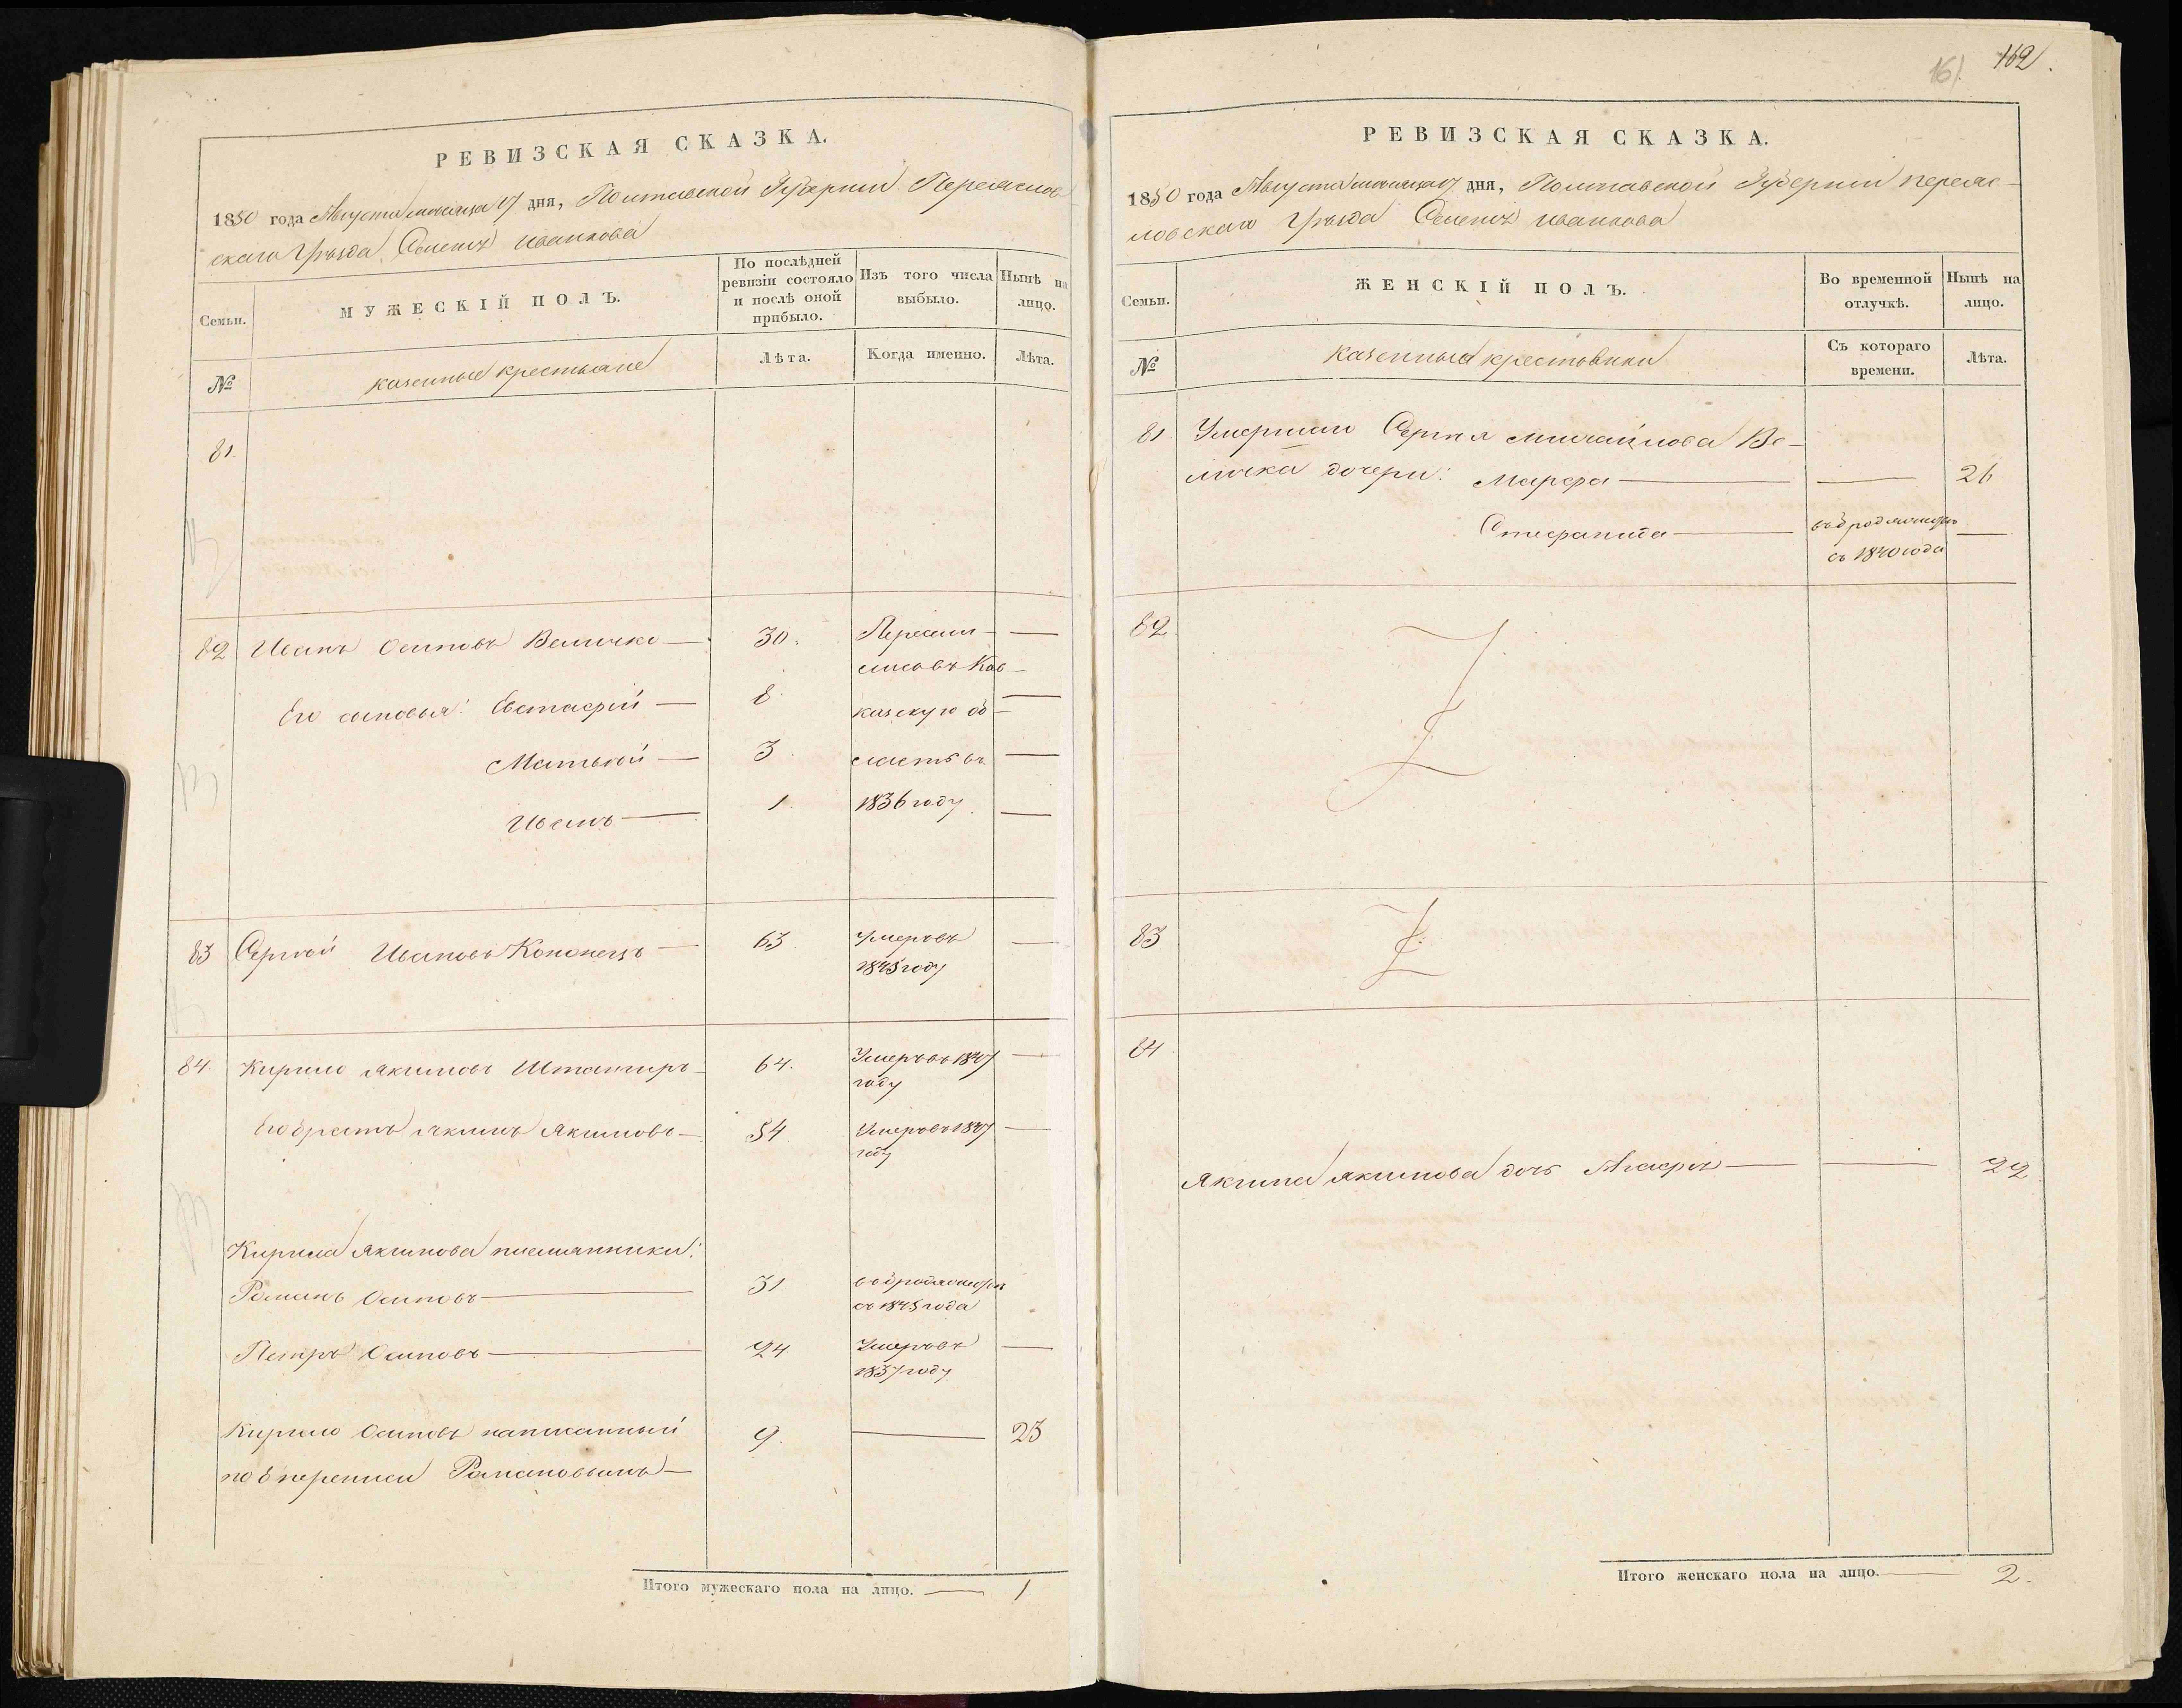 РЕВИЗСКАЯ СКАЗКА.
1850 года Августа месяца 17 дня, Полтавской Губерніи Переяслов
скаго Уѣзда Селенія Иванкова
Семьи.
МУЖЕСКІЙ ПОЛЪ.
По послѣдней ревизіи состояло и послѣ оной прибыло.
Изъ того числа выбыло.
Нынѣ на лицо.
№
казенные крестьяне
Лѣта.
Когда именно.
Лѣта.
81.
82 Иванъ Осиповъ Величко — 30. Пересели- —
лись въ Кав-
Его сыновья: Евстафій — 8. —
казскую об-
Матвѣй — 3. ласть въ —
Иванъ — 1. 1836 году. —
83 Сергѣй Ивановъ Кононецъ — 63. Умеръ въ —
1845 году
84. Кирило Якимовъ Штангиръ — 64. Умеръ въ 1847 —
году
Его братъ Якимъ Якимовъ — 54. Умеръ въ 1847 —
году
Кирила Якимова племянники:
Романъ Осиповъ — 31 въ бродяжеств
съ 1845 года
Петръ Осиповъ — 24 Умеръ въ —
1837 году
Кирило Осиповъ написанный 9. — 25
по 8 переписи Романовымъ —
Итого мужескаго пола на лицо. — 1
161. 162.
РЕВИЗСКАЯ СКАЗКА.
1850 года Августа месяца 17 дня, Полтавской Губерніи Переяс-
ловскаго Уѣзда Селенія Иванкова
Семьи.
ЖЕНСКІЙ ПОЛЪ.
Во временной отлучкѣ.
Нынѣ на лицо.
№
казенныя крестьянки
Съ котораго времени.
Лѣта.
81 Умершаго Сергѣя Михайлова Ве-
личка дочери: Марфа — — 26
Стефанида — въ бродяжеств —
съ 1840 года
82.
83
84
Якима Якимова дочь Агафія — — 22
Итого женскаго пола на лицо. — 2.